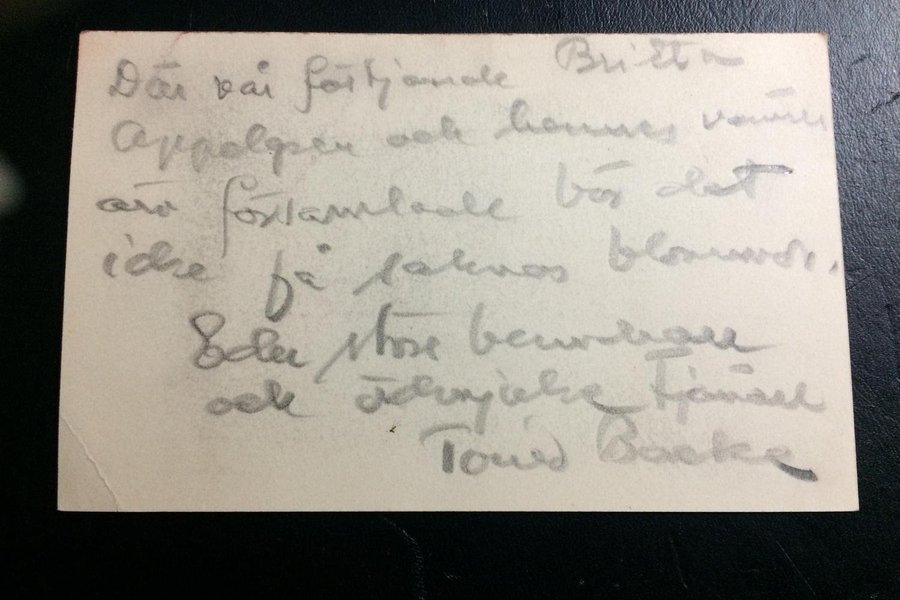 Där vår förtjänande Britta
Appelgren och hennes vänner
äro församlade bör det
icke få saknas blommor.
Eder store beundrare
och ödmjuke tjänare
Backe